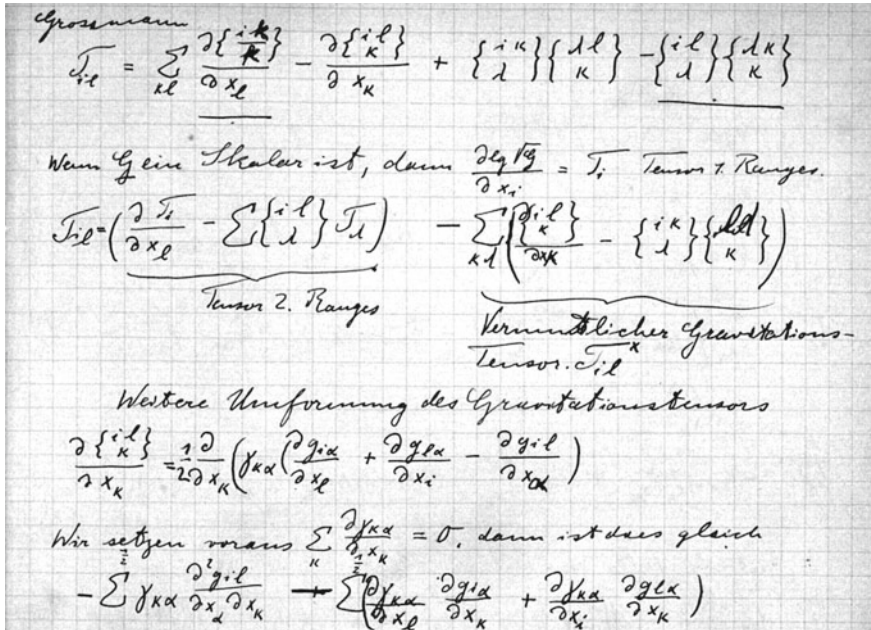 Grossmann
T_{il} = \sum_{κl} \frac{∂\{^{iκ}_{κ}\}}{∂x_l} - \frac{∂\{^{il}_{κ}\}}{∂x_κ} + \{^{iκ}_{λ}\}\{^{λl}_{κ}\} - \{^{il}_{λ}\}\{^{λκ}_{κ}\}
Wenn G ein Skalar ist, dann \frac{∂lg√G}{∂x_i} = T_i Tensor 1. Ranges.
T_{il} = (\frac{∂T_i}{∂x_l} - \sum\{^{il}_{λ}\}T_λ) - \sum_{κλ}(\frac{∂\{^{il}_{κ}\}}{∂x_κ} - \{^{iκ}_{λ}\}\{^{λl}_{κ}\})
Tensor 2. Ranges
Vermutlicher Gravitations-
Tensor. T_{il}^x
Weitere Umformung des Gravitationstensors
\frac{∂\{^{il}_{κ}\}}{∂x_κ} = \frac{1}{2}\frac{∂}{∂x_κ}(γ_{κα}(\frac{∂g_{iα}}{∂x_l} + \frac{∂g_{lα}}{∂x_i} - \frac{∂g_{il}}{∂x_α})
Wir setzen voraus \sum_κ \frac{∂γ_{κα}}{∂x_κ} = 0, dann ist dies gleich
- \frac{1}{2}\sum γ_{κα}\frac{∂^2g_{il}}{∂x_α∂x_κ} + \frac{1}{2}\sum(\frac{∂γ_{κα}}{∂x_l}\frac{∂g_{iα}}{∂x_κ} + \frac{∂γ_{κα}}{∂x_i}\frac{∂g_{lα}}{∂x_κ})